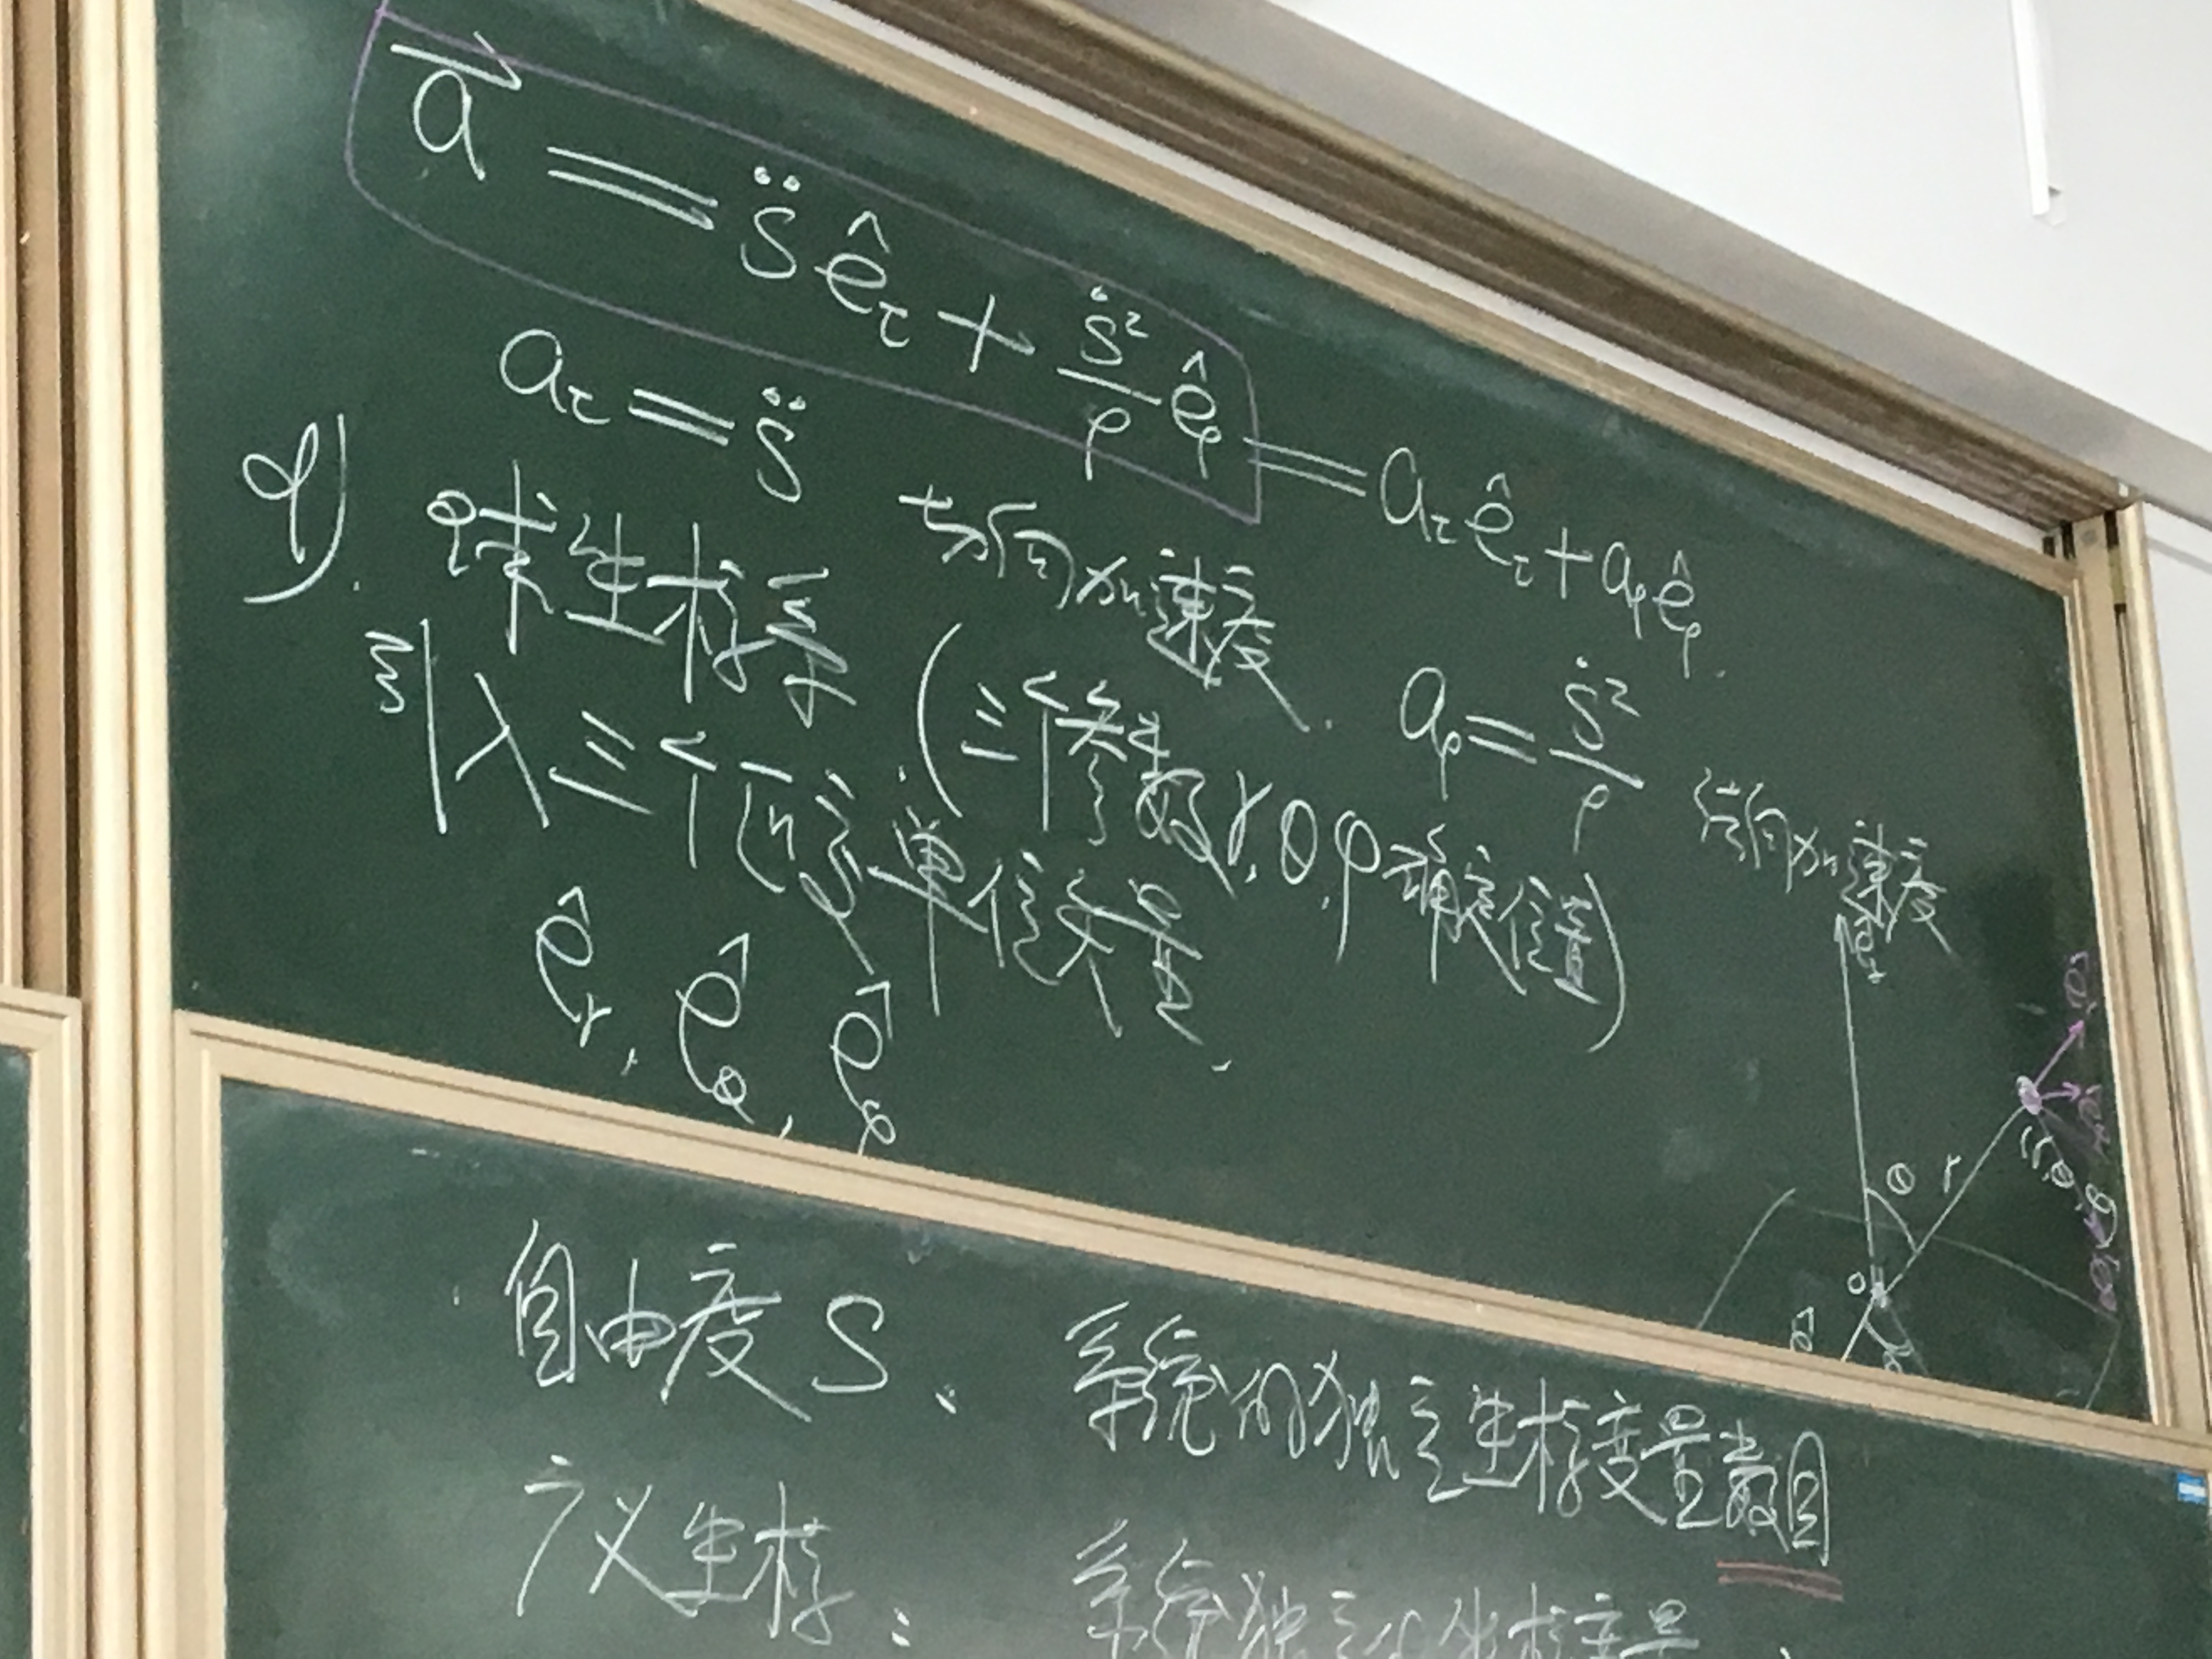 $\vec{a} = \ddot{s}\hat{e}_\tau + \frac{\dot{s}^2}{\rho}\hat{e}_\rho = a_\tau\hat{e}_\tau + a_\rho\hat{e}_\rho$.
$a_\tau = \ddot{s}$ 切向加速度. $a_\rho = \frac{\dot{s}^2}{\rho}$ 法向加速度
4). 球坐标系. (三个参数 r, θ, φ 确定位置)
引入三个正交单位矢量.
$\hat{e}_r, \hat{e}_\theta, \hat{e}_\varphi$
θ r
(r, θ, φ)
o
自由度 S: 系统的独立坐标变量数目
广义坐标: 系统独立的坐标变量